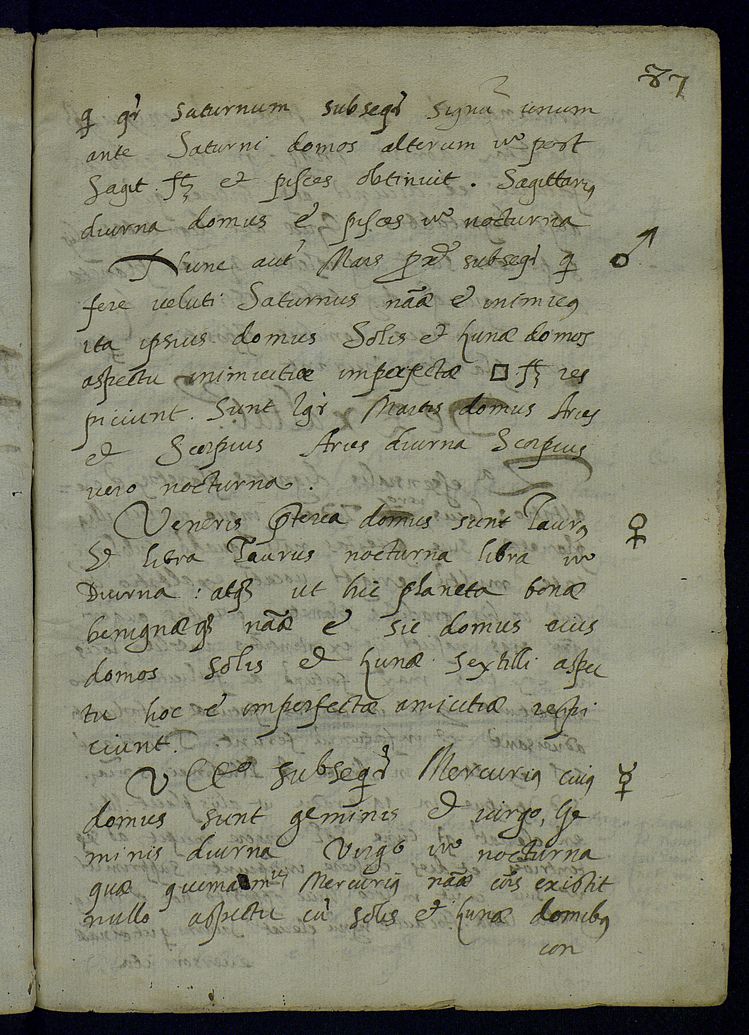 37
q̨ qr̃ Saturnum subseqr̃ signũ unum
ante Saturni domos alterum v° post
Sagit. et pisces obtinuit. Sagittariꝰ
diurna domus ẽ pisces v° nocturna
Nunc aut̃ Mars subseqr̃ q̨ ♂
fere veluti Saturnus nãæ ẽ inimicꝰ
ita ipsius domus Solis et Lunæ domos
aspectu inimicitiæ imperfectæ □ res
piciunt. Sunt Igr̃ Martis domus Aries
et Scorpius Aries diurna Scorpius
vero nocturna.
Veneris p̃terea domus sunt Taurꝰ ♀
Et libra Taurus nocturna libra v°
Diurna: atqꝫ ut hic planeta bonæ
benignæqꝫ nãæ ẽ sic domus eius
domos solis et Lunæ sextilli aspec
tu hoc ẽ imperfectæ amicitiæ respi
ciunt.
subseqr̃ Mercuriꝰ cuiꝰ ☿
domus sunt geminis et virgo, Ge
minis diurna Virgo v° nocturna
quæ Mercuriꝰ nãæ cõis existit
nullo aspectu cũ solis et Lunæ domibꝰ
con